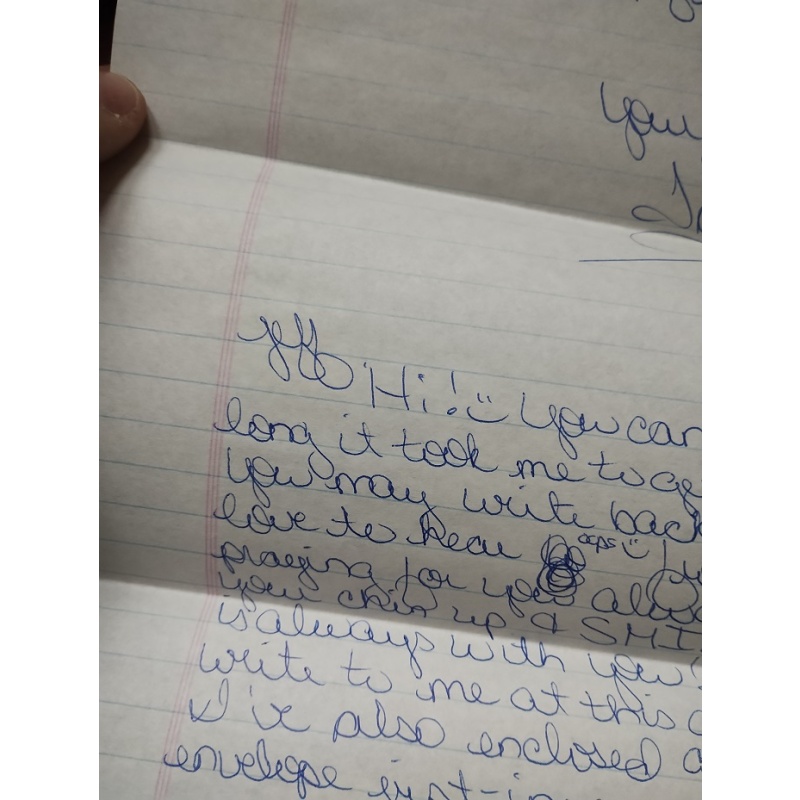 your
Hi! :) You can
long it took me to ge
you may write back
love to hear oops :)
praying for you alwa
your chin up & SMI
is always with you!
write to me at this
I've also enclosed a
envelope just-in